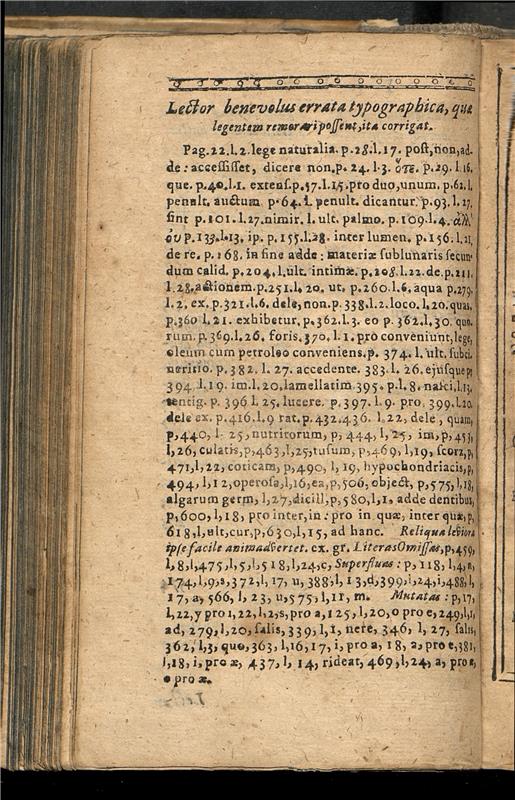 Lector benevolus errata typographica, quæ
legentem remorari possent, ita corrigat.
Pag. 22. l. 2. lege naturalia. p. 28. l. 17. post, non, ad-
de: accessisset, dicere non. p. 24. l. 3. ὅτε. p. 29. l. 16.
que. p. 40. l. 1. extens. p. 57. l. 15. pro duo, unum. p. 62. l.
penult. auctum. p. 64. l. penult. dicantur. p. 93. l. 27.
sint p. 101. l. 27. nimir. l. ult. palmo. p. 109. l. 4. ἀλλ'
οὐ p. 133. l. 13. ip. p. 155. l. 28. inter lumen. p. 156. l. 21,
de re. p. 168. in fine adde: materiæ sublunaris secun
dum calid. p. 204. l. ult. intimæ. p. 208. l. 22. de. p. 211.
l. 28. actionem. p. 251. l. 20. ut. p. 260. l. 6. aqua p. 279.
l. 2. ex. p. 321. l. 6. dele, non. p. 338. l. 2. loco. l. 20. quas.
p. 360 l. 21. exhibetur. p. 362. l. 3. eo p. 362. l. 30. quo-
rum. p. 369. l. 26. foris. 370. l. 1. pro conveniunt, lege,
oleum cum petroleo conveniens. p. 374. l. ult. subti.
p. 382. l. 27. accedente. 383. l. 26. ejusque p,
394 l. 19. im. l. 20. lamellatim 395. p. l. 8. nasci, l. 13.
sentig. p. 396 l. 25. lucere. p. 397. l. 9. pro. 399. l. 20.
dele ex. p. 416. l. 9 rat. p. 432. 436. l. 22, dele, quam,
p, 440, l, 25, nutritorum, p, 444, l, 25, im, p, 453,
l, 26, culatis, p, 463, l, 25, tusum, p, 469, l, 19, scorz, p,
471, l, 22, coticam, p, 490, l, 19, hypochondriacis, p,
494, l, 12, operosa, l, 16, ea, p, 506, object, p, 575, l, 18,
algarum germ, l, 27, dicill, p, 580, l, 1, adde dentibus,
p, 600, l, 18, pro inter, in: pro in quæ, inter quæ, p,
618, l, ult, cur, p, 630, l, 15, ad hanc. Reliqua leviora
ipse facile animadvertet. ex. gr. Literas Omissas, p, 459,
l, 8, l, 475, l, 5, l, 518, l, 24, c, Superfluas: p, 118, l, 4, n,
174, l, 9, s, 372, l, 17, u, 388, l, 13, d, 399, l, 24, i, 488, l,
17, a, 566, l, 23, u, 575, l, 11, m. Mutatas: p, 17,
l, 22, y pro i, 22, l, 2, s, pro a, 125, l, 20, o pro e, 249, l, 1,
ad, 279, l, 20, salis, 339, l, 1, nere, 346, l, 27, salis,
362, l, 3, quo, 363, l, 16, 17, i, pro a, 18, a, pro e, 381,
l, 18, i, pro æ, 437, l, 14, rideat, 469, l, 24, a, pro e,
o pro æ.